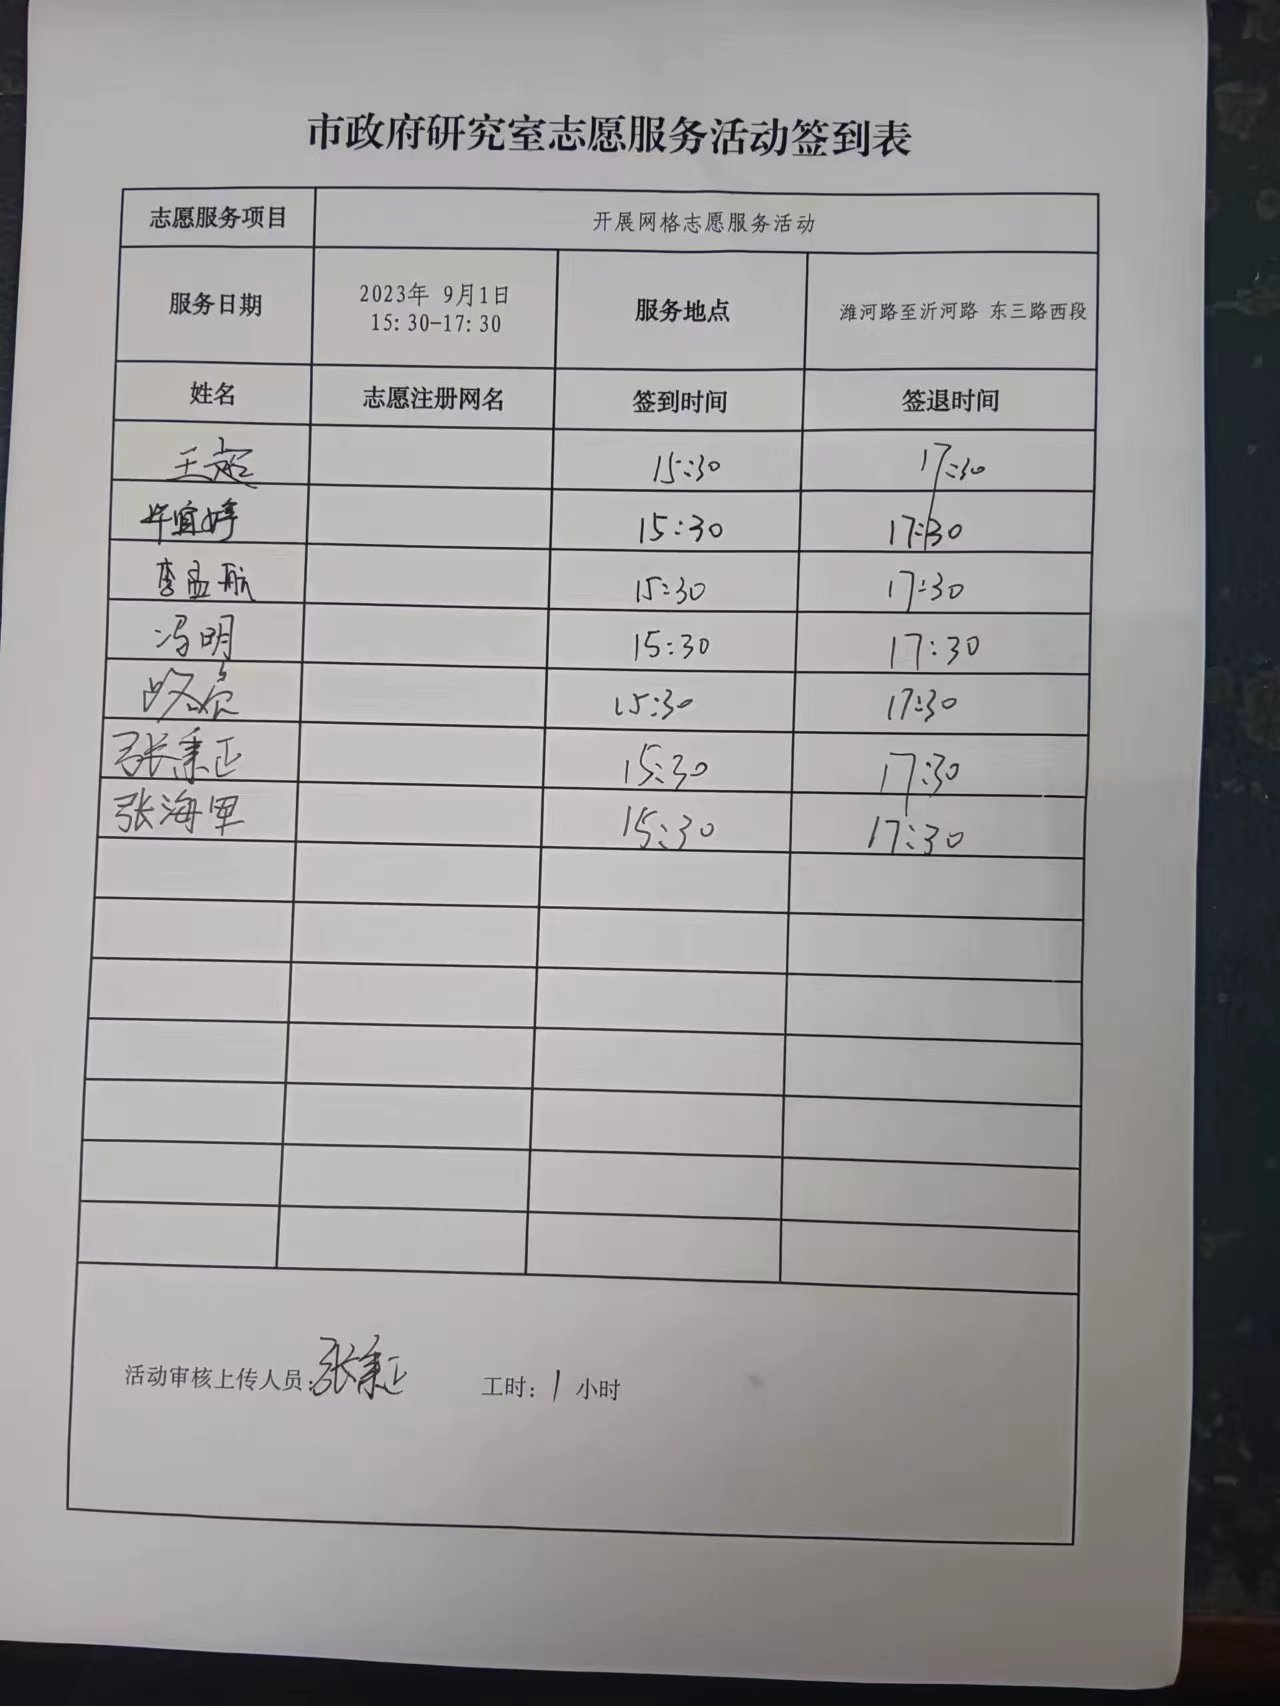 市政府研究室志愿服务活动签到表
志愿服务项目 开展网格志愿服务活动
服务日期 2023年 9月1日 15:30-17:30 服务地点 潍河路至沂河路 东三路西段
姓名 志愿注册网名 签到时间 签退时间
王超 15:30 17:30
宜婷 15:30 17:30
李孟航 15:30 17:30
冯明 15:30 17:30
15:30 17:30
张秉正 15:30 17:30
张海军 15:30 17:30
活动审核上传人员:张秉正 工时:1小时